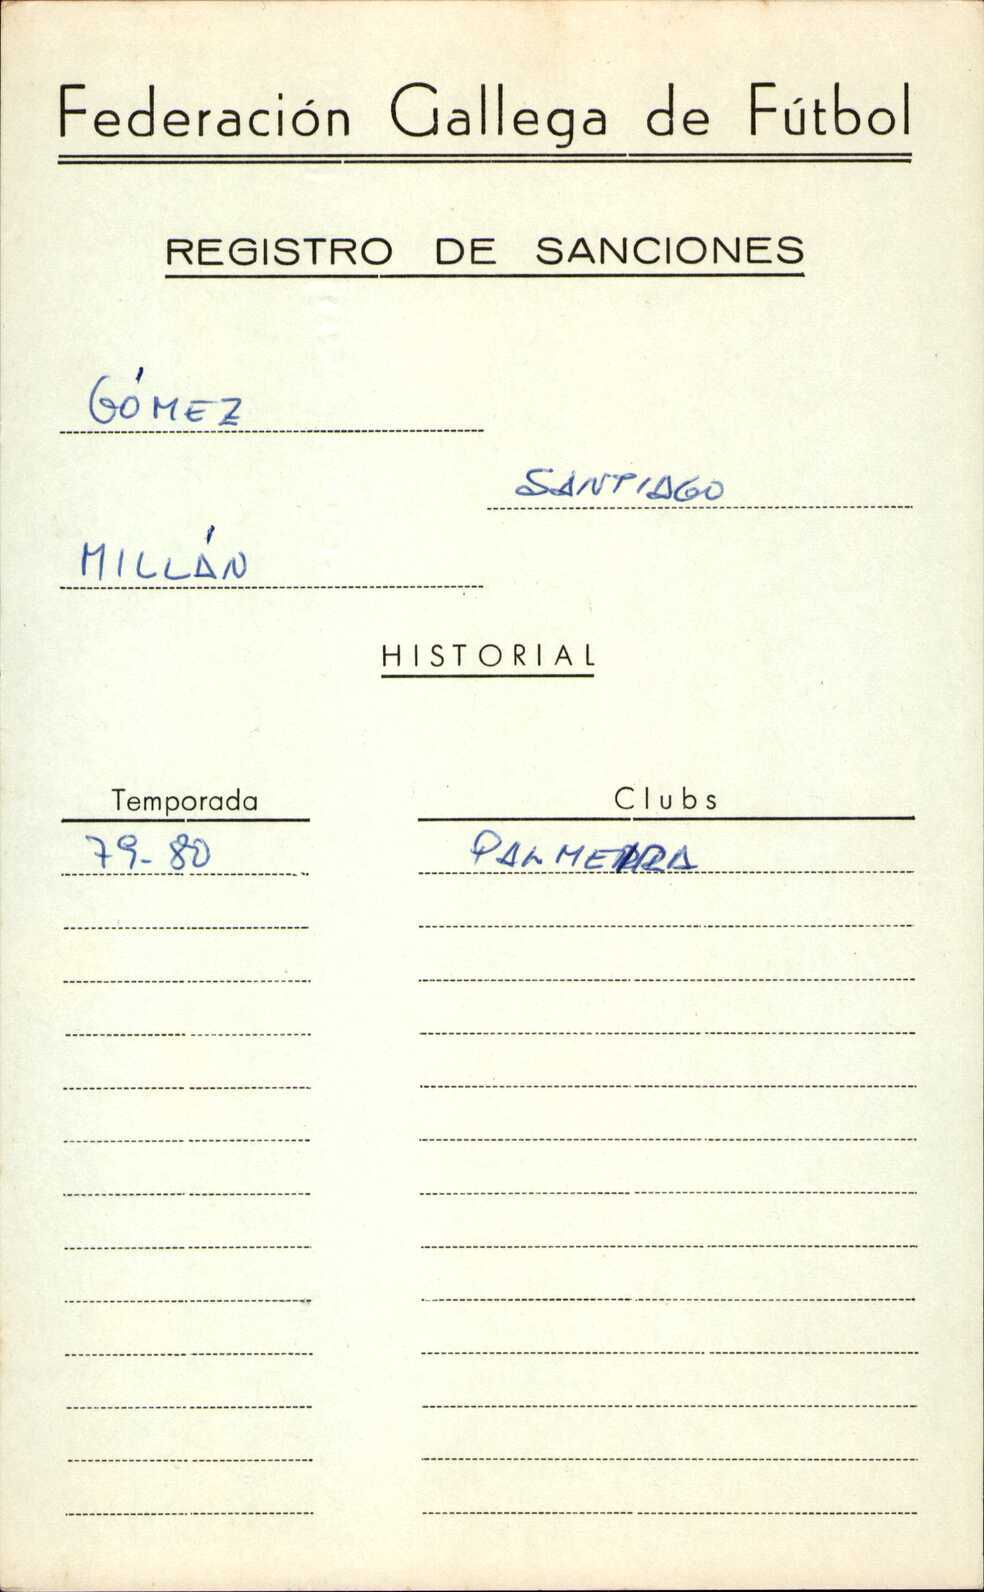 Federación Gallega de Fútbol
REGISTRO DE SANCIONES
GÓMEZ
SANTIAGO
MILLÁN
HISTORIAL
Temporada Clubs
79-80 PALMEIRA